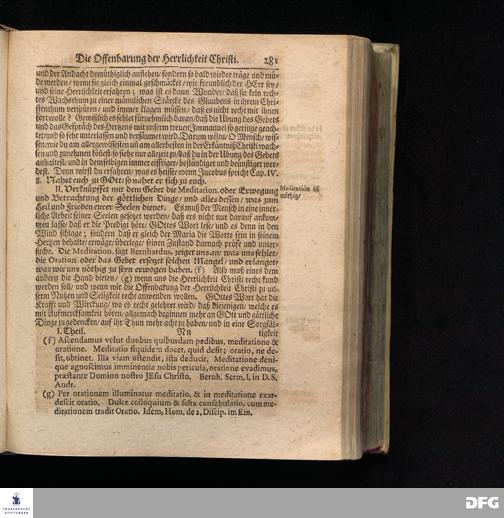 Die Offenbarung der Herrlichkeit Christi. 281
und der Andacht demüthiglich anflehen/ sondern so bald wieder träge und mü-
de werden/ wenn sie gleich einmal geschmäcket/ wie freundlich der HErr sey/
und seine Herrlichkeit erfahren; was ist es dann Wunder/ daß sie kein rech-
tes Wachsthum zu einer männlichen Stärcke des Glaubens in ihrem Chri-
stenthum verspüren/ und immer klagen müssen/ daß es nicht recht mit ihnen
fort wolle? Gewißlich es fehlet fürnehmlich daran/ daß die Übung des Gebets
und das Gespräch des Hertzens mit unserm treuen Immanuel so geringe geach-
tet und so sehr unterlassen und versäumet wird. Darum wilstu/ O Mensch/ wis-
sen/ wie du am allergewissesten uñ am allerbesten in der Erkäntniß Christi wach-
sen und zunehmen könest/ so siehe nur allezeit zu/ daß du in der Übung des Gebets
anhaltest/ und in demselbigen immer eiffriger/ beständiger und brünstiger wer-
dest. Denn wirst du erfahren/ was es heisse/ wenn Jacobus spricht Cap. IV.
8. Nahet euch zu GOtt/ so nahet er sich zu euch.
II. Verknüpffet mit dem Gebet die Meditation, oder Erwegung
und Betrachtung der göttlichen Dinge/ und alles dessen/ was zum
Meditation ist
nöthig/
Heil und Frieden eurer Seelen dienet. Es muß der Mensch in eine inner-
liche Arbeit seiner Seelen gesetzet werden/ daß ers nicht nur darauf ankom-
men lasse/ daß er die Predigt höre/ GOttes Wort lese/ und es denn in den
Wind schlage; sondern daß er gleich der Maria die Worte fein in seinem
Hertzen behalte/ erwäge/ überlege/ seinen Zustand darnach prüfe und unter-
suche. Die Meditation, sagt Bernhardus, zeiget uns an/ was uns fehlet/
die Oration oder das Gebet ersetzet solchen Mangel/ und erlanget/
was wir uns nöthig zu seyn erwogen haben. (f) Also muß eines dem
andern die Hand bieten/ (g) wenn uns die Herrlichkeit Christi recht kund
werden soll/ und wenn wir die Offenbarung der Herrlichkeit Christi zu un-
serm Nutzen und Seligkeit recht anwenden wollen. GOttes Wort hat die
Krafft und Würckung/ wo es recht gelehret wird/ daß diejenigen/ welche es
mit Aufmercksamkeit hören/ allgemach beginnen mehr an GOtt und göttliche
Dinge zu gedencken/ auf ihr Thun mehr acht zu haben/ und in eine Sorgfäl-
I. Theil. Nn tigkeit
(f) Ascendamus velut duobus quibusdam pedibus, meditatione &
oratione. Meditatio siquidem docet, quid desit; oratio, ne de-
sit, obtinet. Illa viam ostendit, ista deducit. Meditatione deni-
que agnoscimus imminentia nobis pericula, oratione evadimus,
præstante Domino nostro JEsu Christo. Bernh. Serm. I. in D. S.
Andr.
(g) Per orationem illuminatur meditatio, & in meditatione exar-
descit oratio. Dulce colloquium & felix confabulatio, cum me-
ditationem tradit Oratio. Idem, Hom. de 2. Discip. im Em.
FRANCKESCHE
STIFTUNGEN
DFG